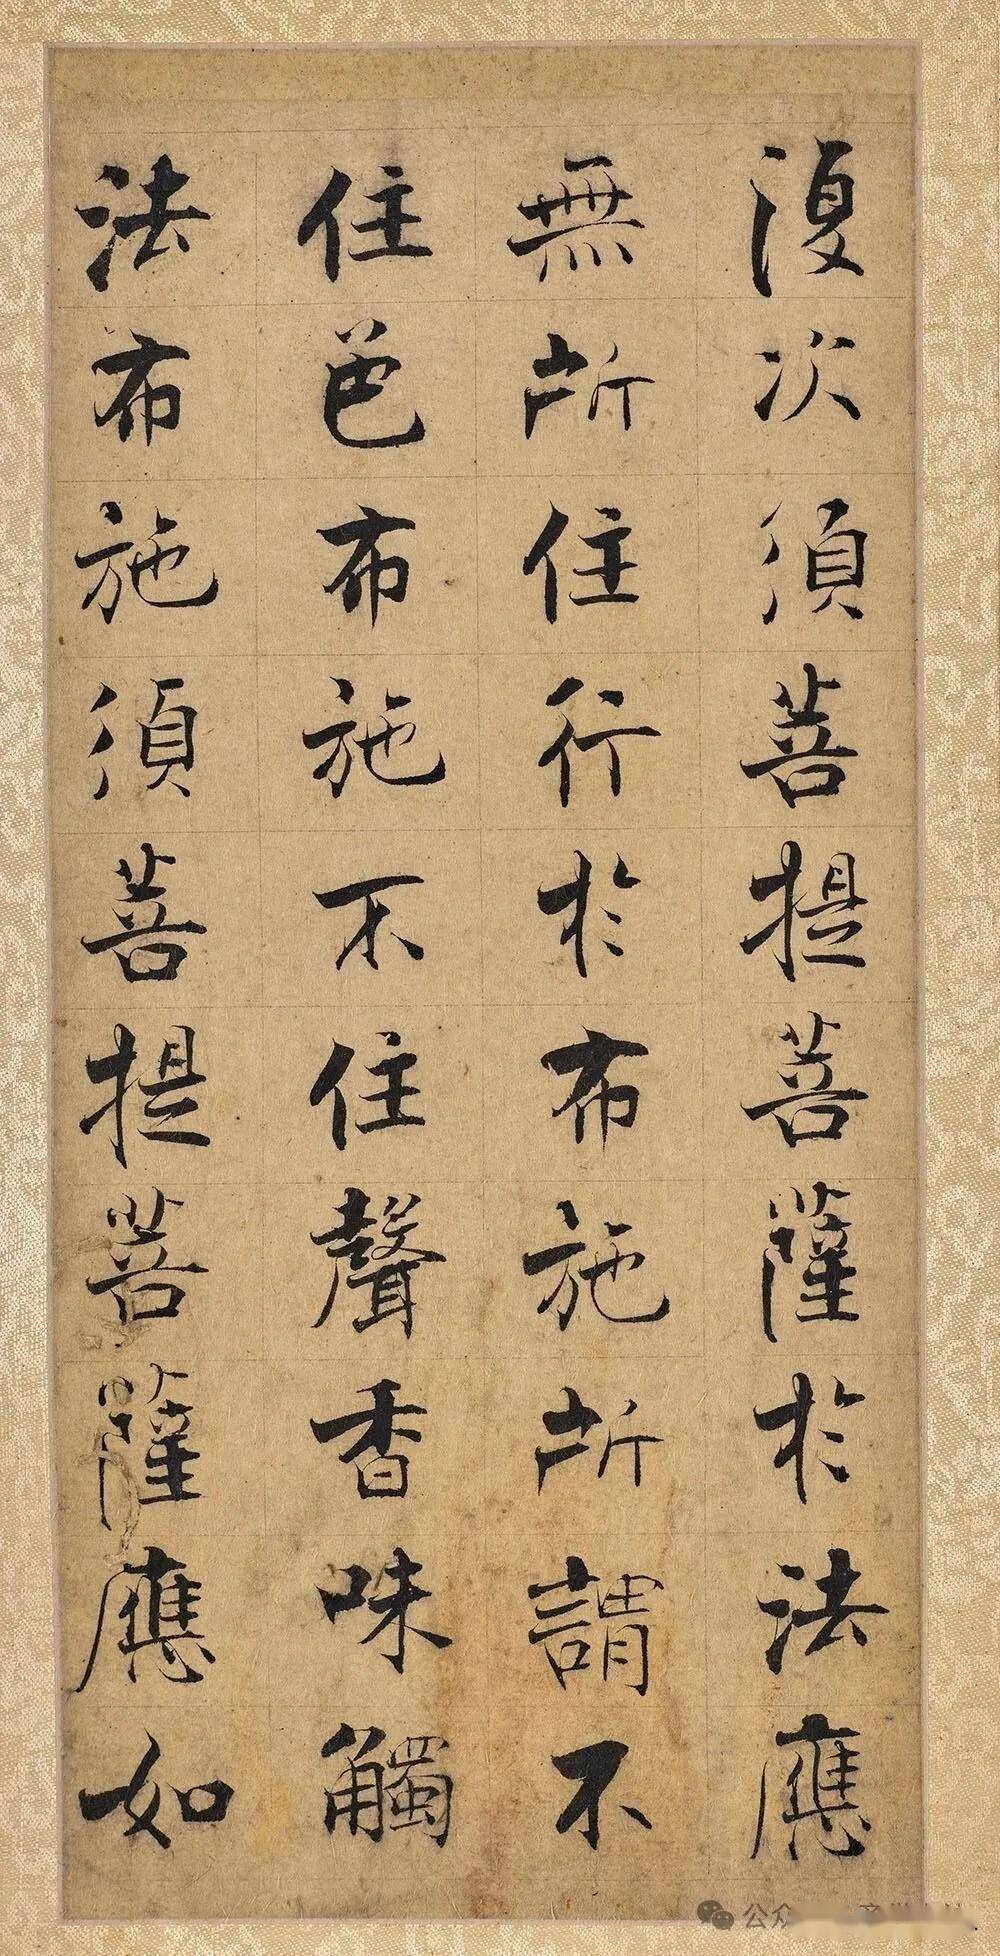 復次須菩提菩薩於法應
無所住行於布施所謂不
住色布施不住聲香味觸
法布施須菩提菩薩應如
公众